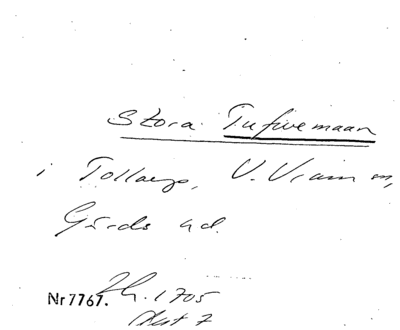 Stora Tufvemaan
i Tollarp, V. Vram sn,
Gärds hd.
Nr 7767. Jh. 1705